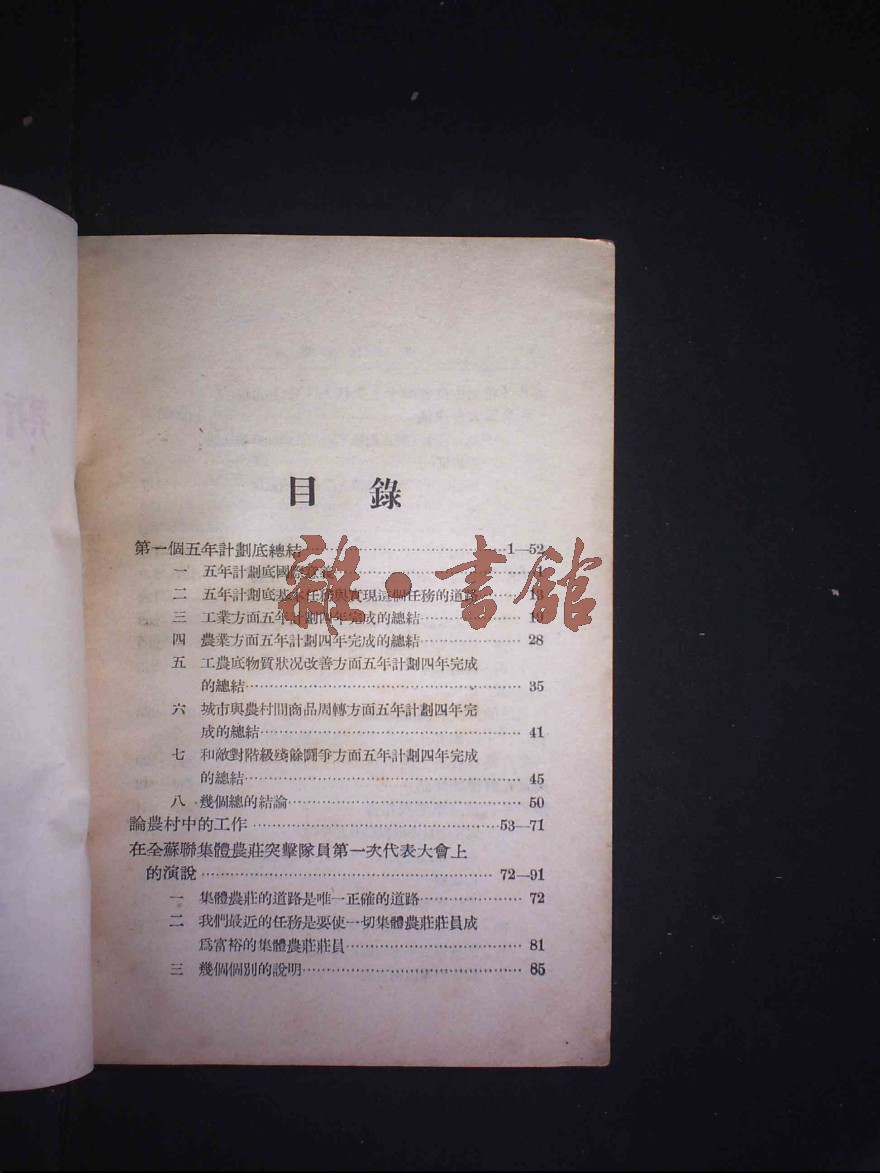 目 錄
第一個五年計劃底總結…1—52
一 五年計劃底國際意義…1
二 五年計劃底基本任務與實現這個任務的道路…13
三 工業方面五年計劃四年完成的總結…19
四 農業方面五年計劃四年完成的總結…28
五 工農底物質狀况改善方面五年計劃四年完成
的總結…35
六 城市與農村間商品周轉方面五年計劃四年完
成的總結…41
七 和敵對階級殘餘鬪爭方面五年計劃四年完成
的總結…45
八 幾個總的結論…50
論農村中的工作…53—71
在全蘇聯集體農莊突擊隊員第一次代表大會上
的演說…72—91
一 集體農莊的道路是唯一正確的道路…72
二 我們最近的任務是要使一切集體農莊莊員成
爲富裕的集體農莊莊員…81
三 幾個個別的說明…85
雜·書館
斯